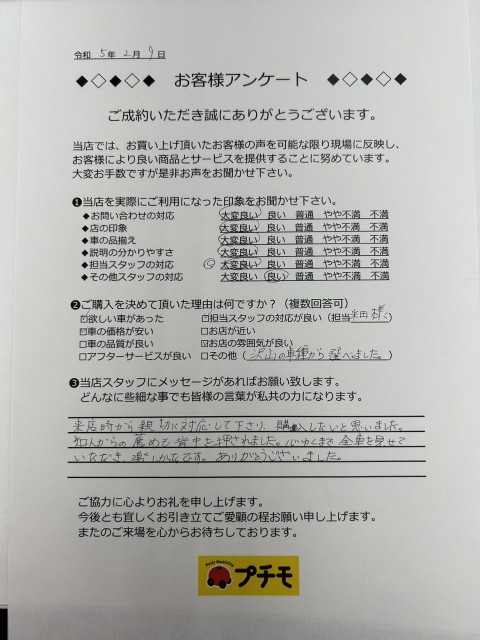 令和 5年 2月 9日
◆◇◆◇◆ お客様アンケート ◆◇◆◇◆
ご成約いただき誠にありがとうございます。
当店では、お買い上げ頂いたお客様の声を可能な限り現場に反映し、
お客様により良い商品とサービスを提供することに努めています。
大変お手数ですが是非お声をお聞かせ下さい。
❶当店を実際にご利用になった印象をお聞かせ下さい。
◆お問い合わせの対応 大変良い 良い 普通 やや不満 不満
◆店の印象 大変良い 良い 普通 やや不満 不満
◆車の品揃え 大変良い 良い 普通 やや不満 不満
◆説明の分かりやすさ 大変良い 良い 普通 やや不満 不満
◆担当スタッフの対応 大変良い 良い 普通 やや不満 不満
◆その他スタッフの対応 大変良い 良い 普通 やや不満 不満
❷ご購入を決めて頂いた理由は何ですか？（複数回答可）
☑欲しい車があった ☑担当スタッフの対応が良い（担当 様）
☑車の価格が安い □お店が近い
□車の品質が良い ☑お店の雰囲気が良い
□アフターサービスが良い □その他（沢山の車種から選べました。）
❸当店スタッフにメッセージがあればお願い致します。
どんなに些細な事でも皆様の言葉が私共の力になります。
来店時から親切に対応して下さり、購入したいと思いました。
知人からの薦めも背中を押されました。心ゆくまで全車を見せて
いただき、楽しかったです。ありがとうございました。
ご協力に心よりお礼を申し上げます。
今後とも宜しくお引き立てご愛顧の程お願い申し上げます。
またのご来場を心からお待ちしております。
Petit Mobility
プチモ